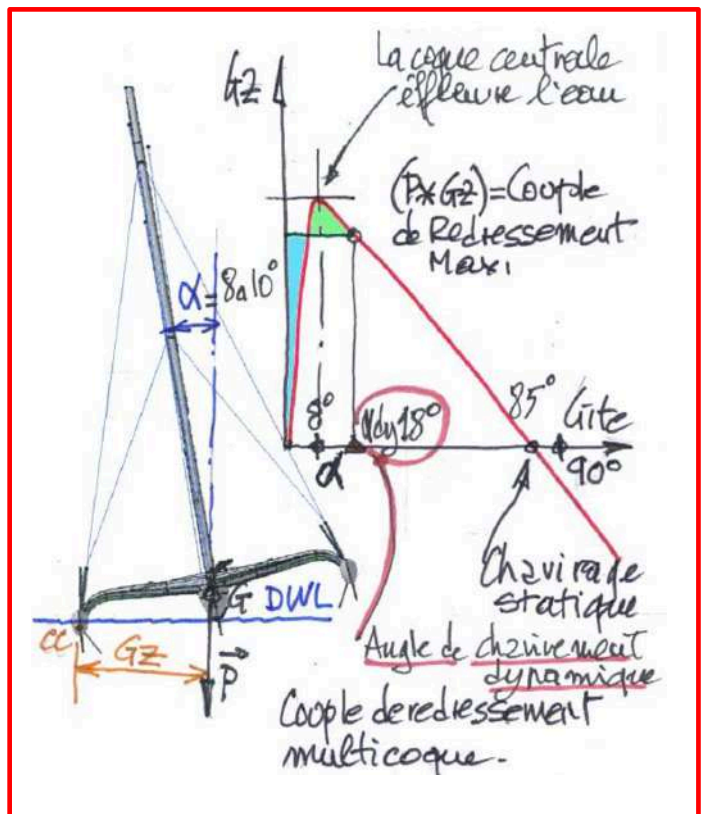 La coque centrale
éffleure l'eau
GZ
(P*GZ)=Couple
de Redressement
Maxi
α=8à10°
8°
α
αdy18°
85°
Gite
90°
Chavirage
statique
G
DWL
cc
GZ
P
Angle de chavirement
dynamique
Couple de redressement
multicoque.